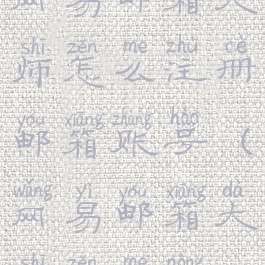 易邮箱大
shī zěn me zhù cè
师怎么注册
yóu xiāng zhàng hào
邮箱账号（
wǎng yì yóu xiāng dà
网易邮箱大
shī zěn me nòng